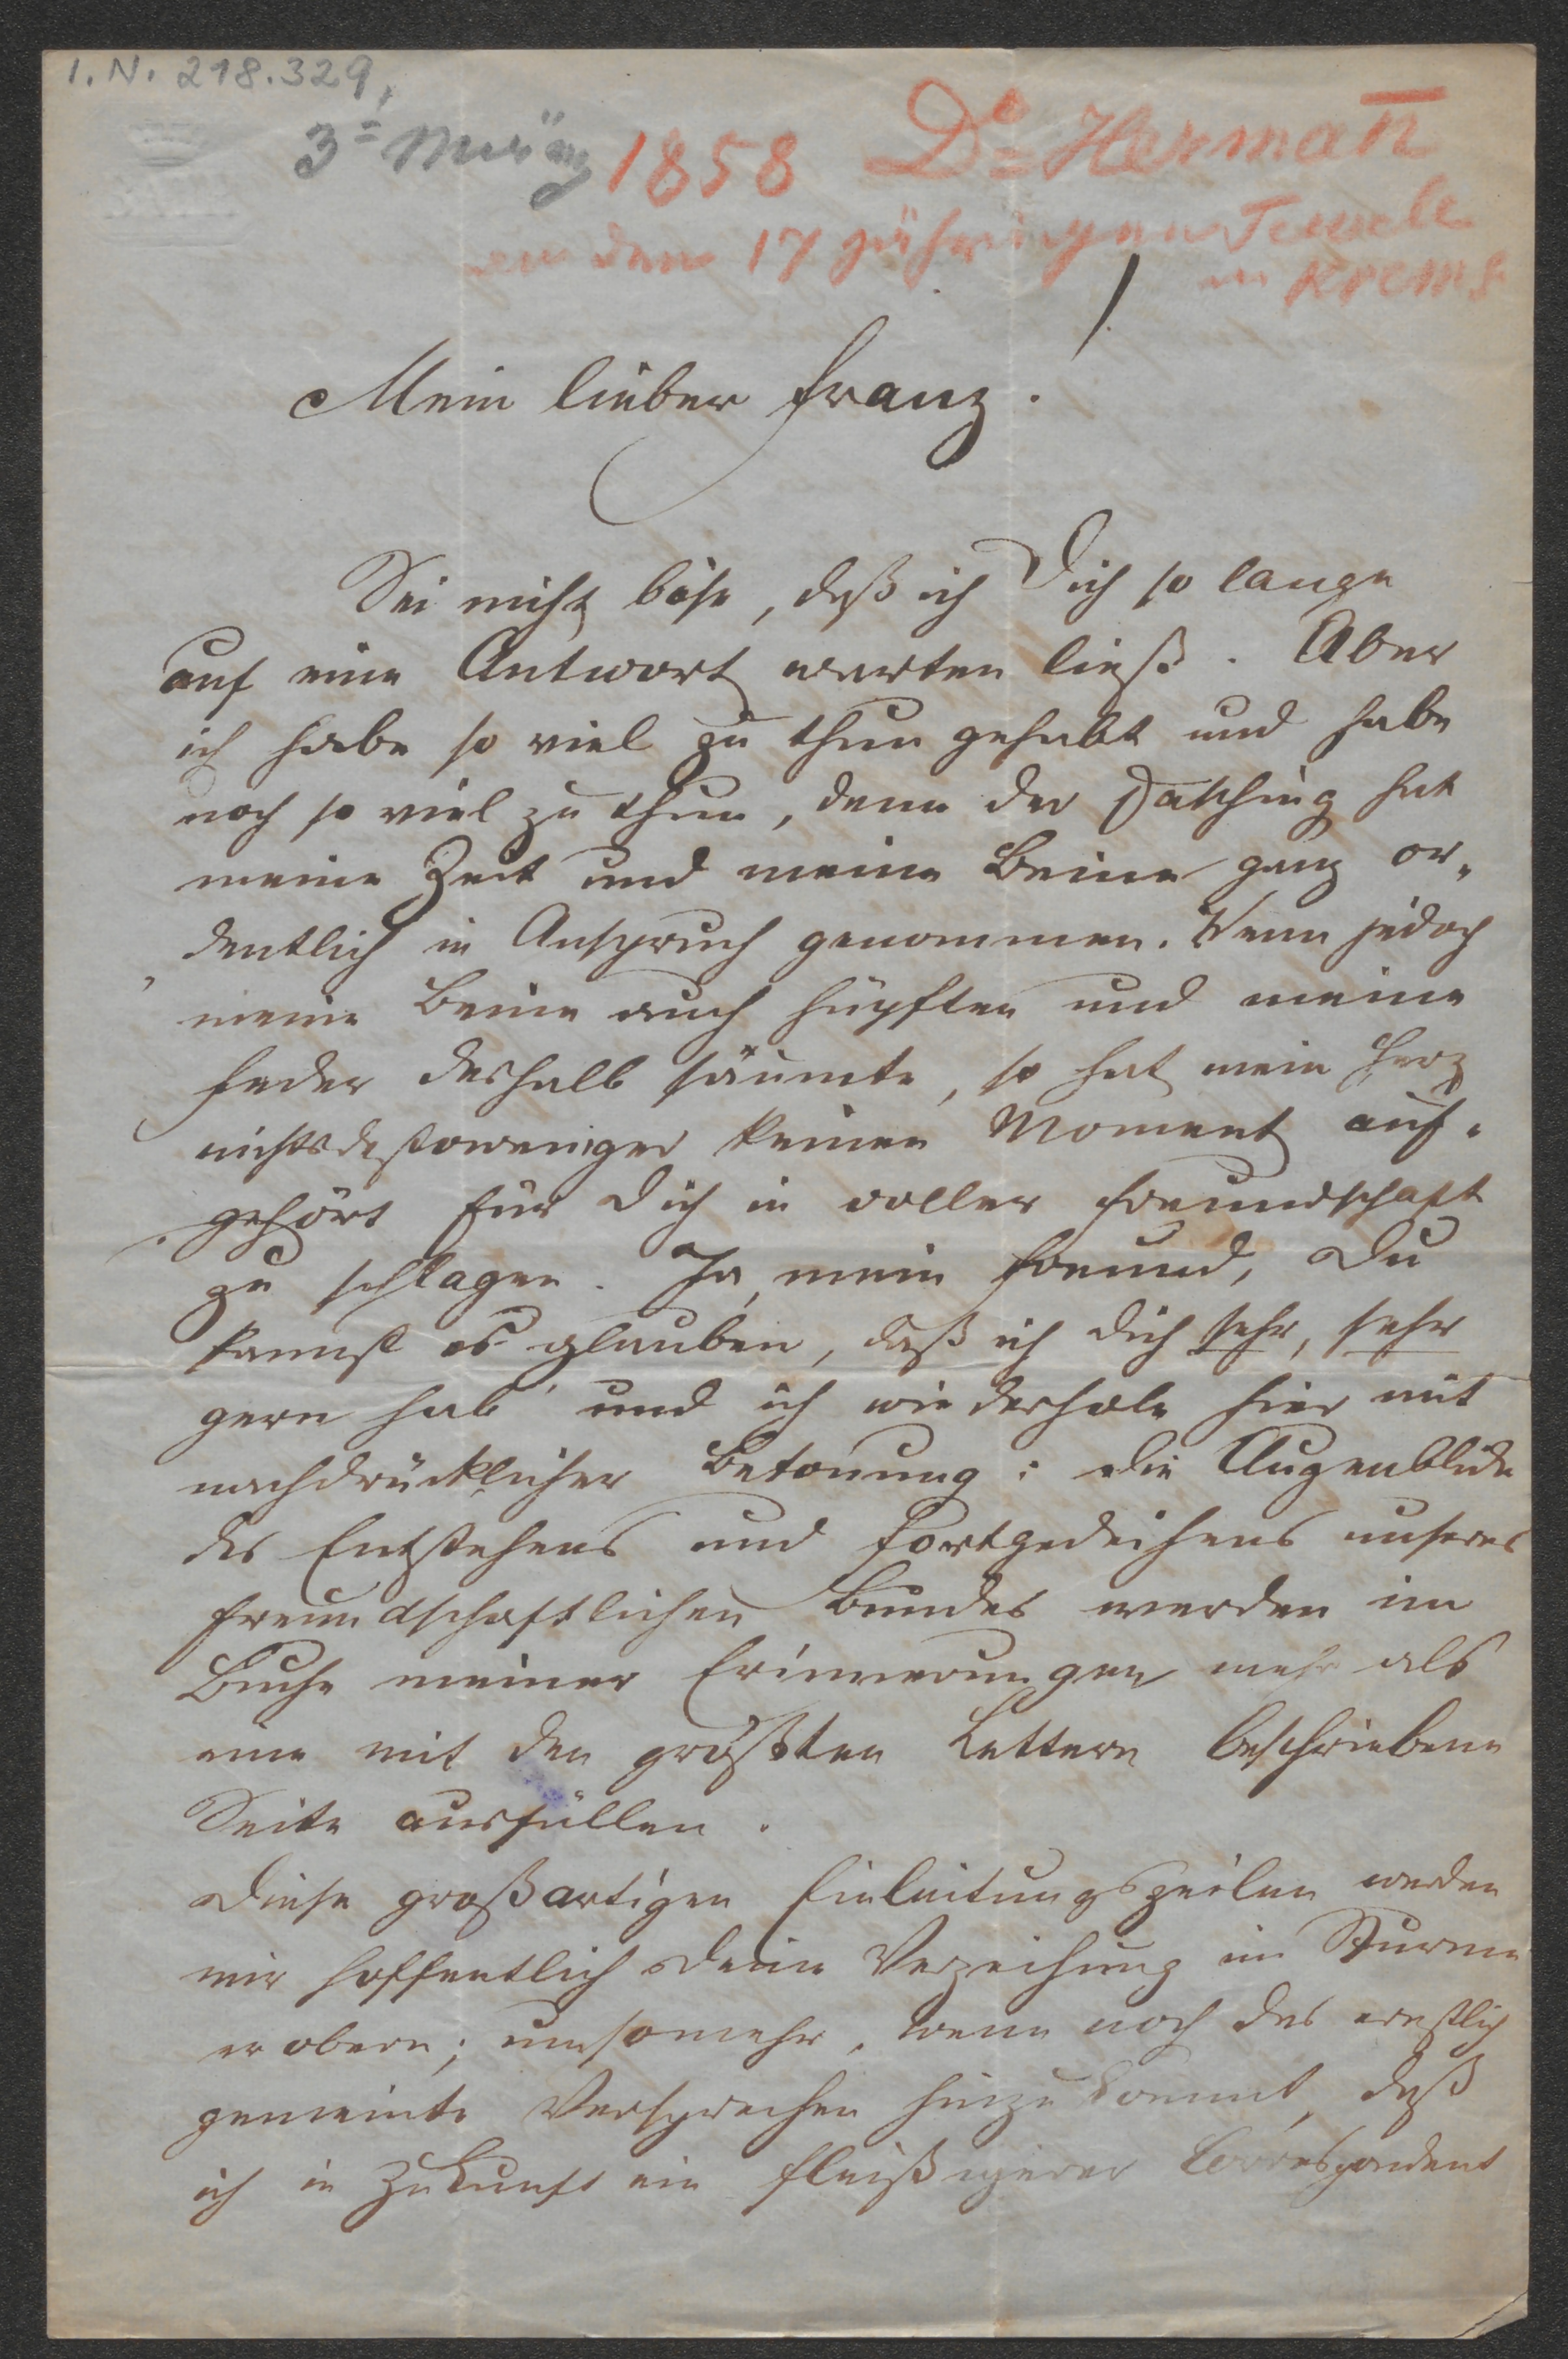 I. N. 218.329,
3= März 1858 Dr= Hermañ
an den 17 jährigen Tewele
in Krems
Mein lieber Franz!
Sei nicht böse, daß ich Dich so lange
auf eine Antwort warten ließ. Aber
ich habe so viel zu thun gehabt und habe
noch so viel zu thun, denn der Fasching hat
meine Zeit und meine Beine ganz or„
dentlich in Anspruch genommen. Wenn jedoch
meine Beine auch hüpften und meine
Feder deshalb säumte, so hat mein Herz
nichtsdestoweniger keinen Moment auf„
gehört für Dich in voller Freundschaft
zu schlagen. Ja, mein Freund, Du
kannst es glauben, daß ich Dich sehr, sehr
gern hab' und ich wiederhole hier mit
nachdrücklicher Betonung: die Augenblicke
des Entstehens und Fortgedeihens unseres
freundschaftlichen Bundes werden im
Buche meiner Erinnerungen mehr als
eine mit den größten Lettern beschriebene
Seite ausfüllen.
Diese großartigen Einleitungszeilen werden
mir hoffentlich Deine Verzeihung im Sturme
erobern; umsomehr, wenn noch das ernstlich
gemeinte Versprechen hinzukommt, daß
ich in Zukunft ein fleißigerer Correspondent